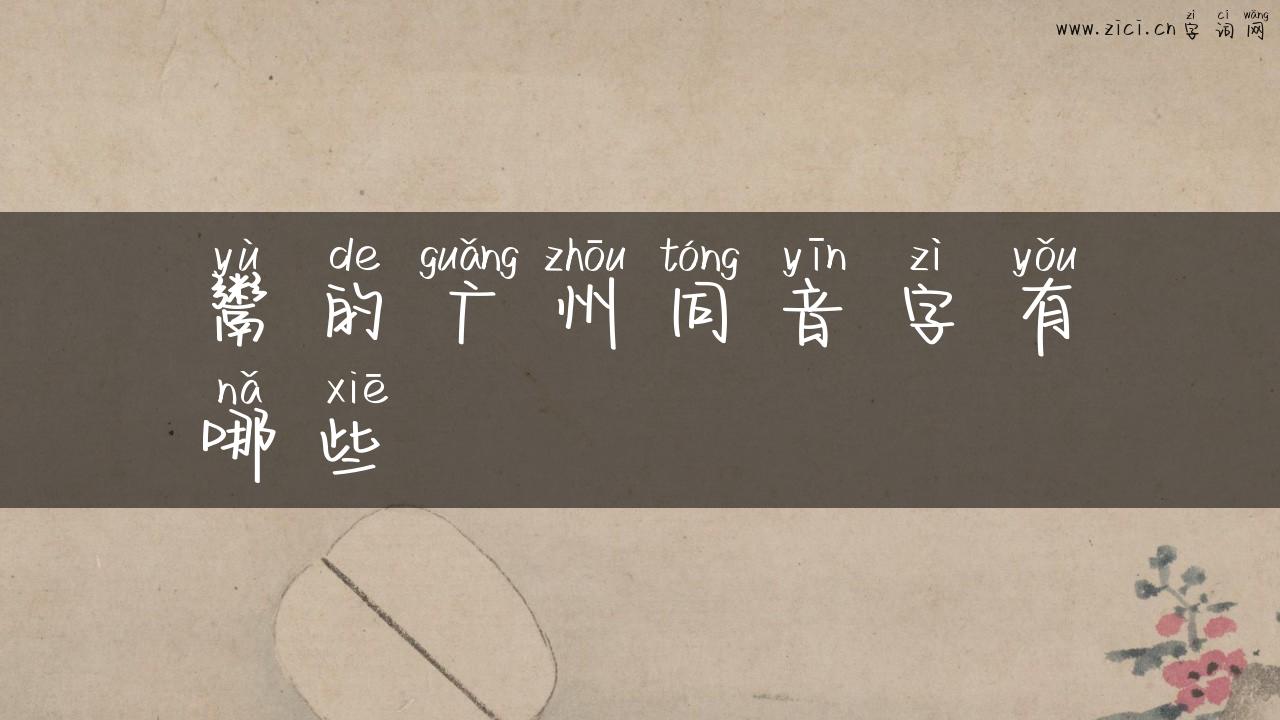 zì cí wǎng
www.zici.cn 字词网
yù de guǎng zhōu tóng yīn zì yǒu
鬻的广州同音字有
nǎ xiē
哪些